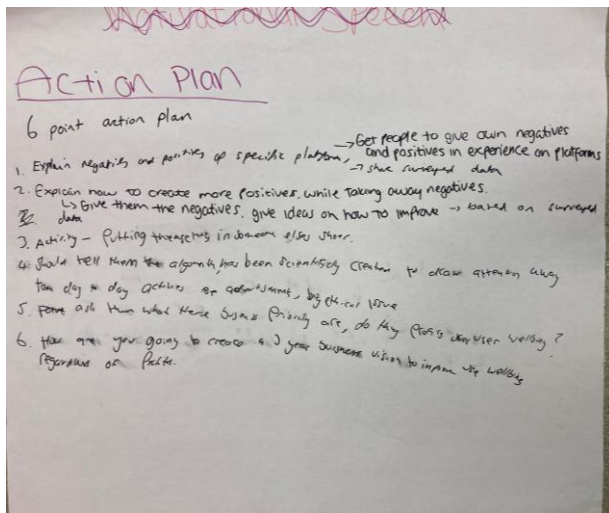 Motivational Speech
Action Plan
6 point action plan
1. Explain negatives and positives of specific platform, → Get people to give own negatives
and positives in experience on platforms
→ share surveyed data
2. Explain how to create more positives, while taking away negatives.
↳ Give them the negatives, give ideas on how to improve → based on surveyed
data
3. Activity - Putting themselves in someone elses shoes.
4. Should tell them algorithm has been scientificly to draw attention away
day to day activities advertisment, big ethical issue
5. ask them what these business priority are, do they profits over user wellbeing?
6. How are you going to create a 3 year business vision to improve wellbeing
regardless of profits.